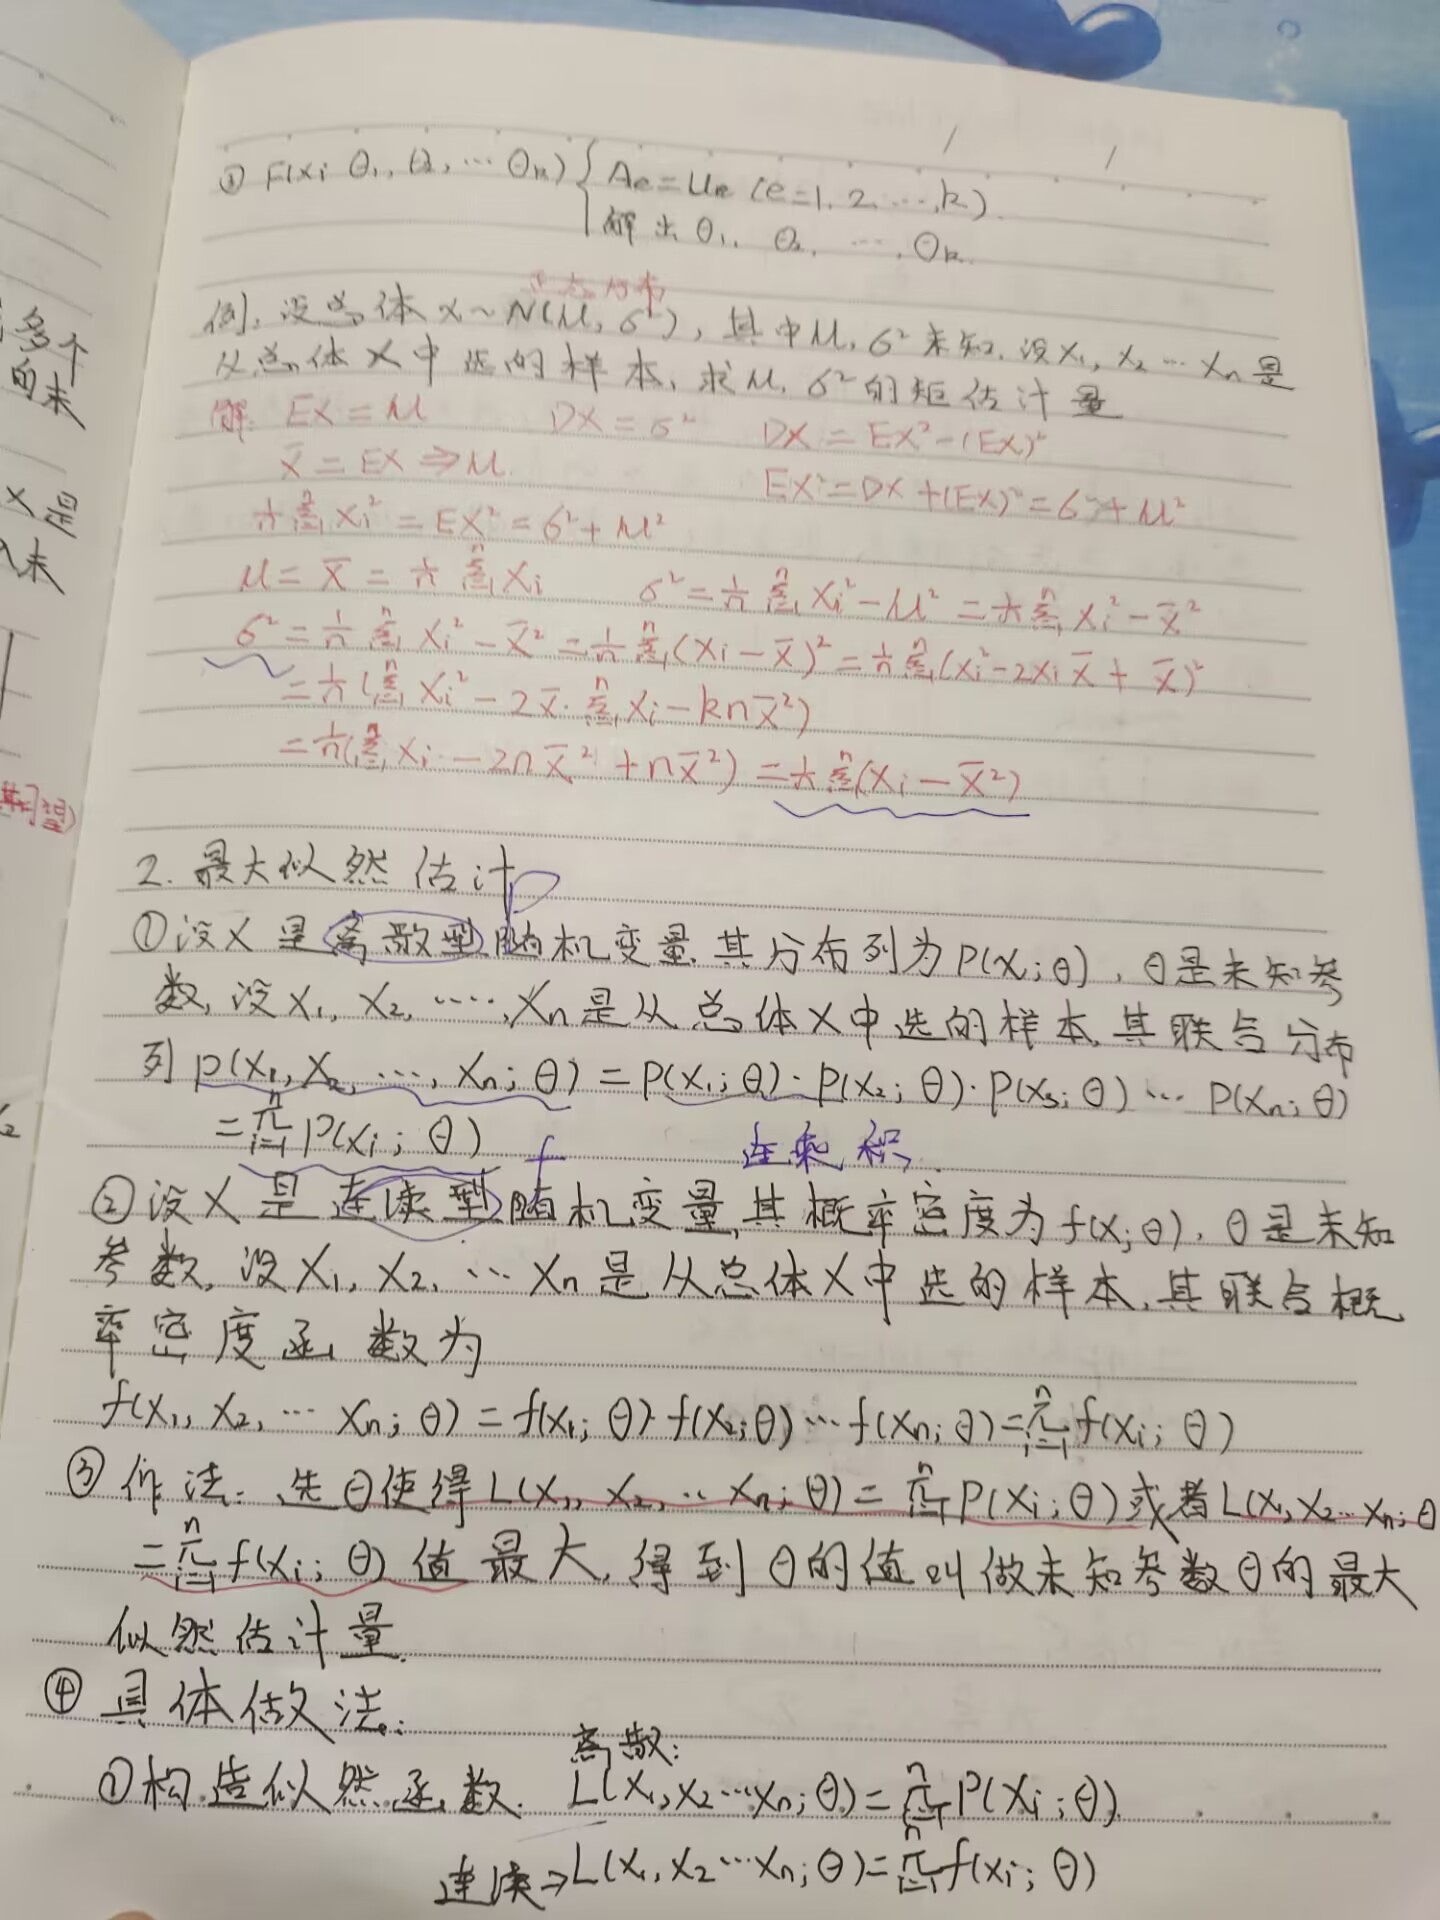 ③ F(x; θ₁, θ₂, … θₖ) { Aₑ = uₑ (e=1, 2, …, k).
解出 θ₁, θ₂, …, θₖ.
正态分布
例, 设总体 X ~ N(μ, σ²), 其中 μ, σ² 未知, 设 X₁, X₂ … Xₙ 是
从总体 X 中选的样本, 求 μ, σ² 的矩估计量
解: EX = μ DX = σ² DX = EX² - (EX)²
X̄ = EX ⇒ μ. EX² = DX + (EX)² = σ² + μ²
1/n Σᵢ₌₁ⁿ Xᵢ² = EX² = σ² + μ²
μ = X̄ = 1/n Σᵢ₌₁ⁿ Xᵢ σ² = 1/n Σᵢ₌₁ⁿ Xᵢ² - μ² = 1/n Σᵢ₌₁ⁿ Xᵢ² - X̄²
σ² = 1/n Σᵢ₌₁ⁿ Xᵢ² - X̄² = 1/n Σᵢ₌₁ⁿ (Xᵢ - X̄)² = 1/n Σᵢ₌₁ⁿ (Xᵢ² - 2Xᵢ X̄ + X̄)²
= 1/n (Σᵢ₌₁ⁿ Xᵢ² - 2X̄ · Σᵢ₌₁ⁿ Xᵢ - knX̄²)
= 1/n (Σᵢ₌₁ⁿ Xᵢ - 2nX̄² + nX̄²) = 1/n Σᵢ₌₁ⁿ (Xᵢ - X̄²)
2. 最大似然估计
P
① 设 X 是离散型随机变量, 其分布列为 P(X; θ), θ 是未知参
数, 设 X₁, X₂, …, Xₙ 是从总体 X 中选的样本, 其联合分布
列 P(X₁, X₂, …, Xₙ; θ) = P(X₁; θ) · P(X₂; θ) · P(X₃; θ) … P(Xₙ; θ)
= πᵢ₌₁ⁿ P(Xᵢ; θ) f 连乘积.
② 设 X 是连续型随机变量, 其概率密度为 f(X; θ), θ 是未知
参数, 设 X₁, X₂, … Xₙ 是从总体 X 中选的样本, 其联合概
率密度函数为
f(X₁, X₂, … Xₙ; θ) = f(X₁; θ) · f(X₂; θ) … f(Xₙ; θ) = πᵢ₌₁ⁿ f(Xᵢ; θ)
③ 作法: 选 θ 使得 L(X₁, X₂, … Xₙ; θ) = πᵢ₌₁ⁿ P(Xᵢ; θ) 或者 L(X₁, X₂ … Xₙ; θ
= πᵢ₌₁ⁿ f(Xᵢ; θ) 值最大, 得到 θ 的值叫做未知参数 θ 的最大
似然估计量.
④ 具体做法:
离散:
① 构造似然函数. L(X₁, X₂ … Xₙ; θ) = πᵢ₌₁ⁿ P(Xᵢ; θ).
连续 → L(X₁, X₂ … Xₙ; θ) = πᵢ₌₁ⁿ f(Xᵢ; θ)
多个
的未
X 是
未